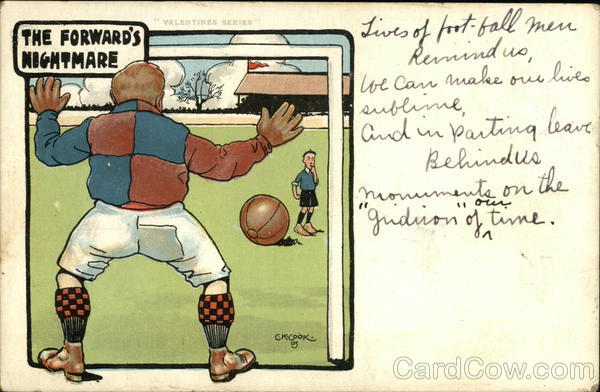 "VALENTINES SERIES"
THE FORWARD'S
NIGHTMARE
Lives of foot-ball men
Remind us,
We can make our lives
sublime,
And in parting leave
Behind us
Monuments on the
our
"Gridiron" of time.
C.K.COOK
05
CardCow.com